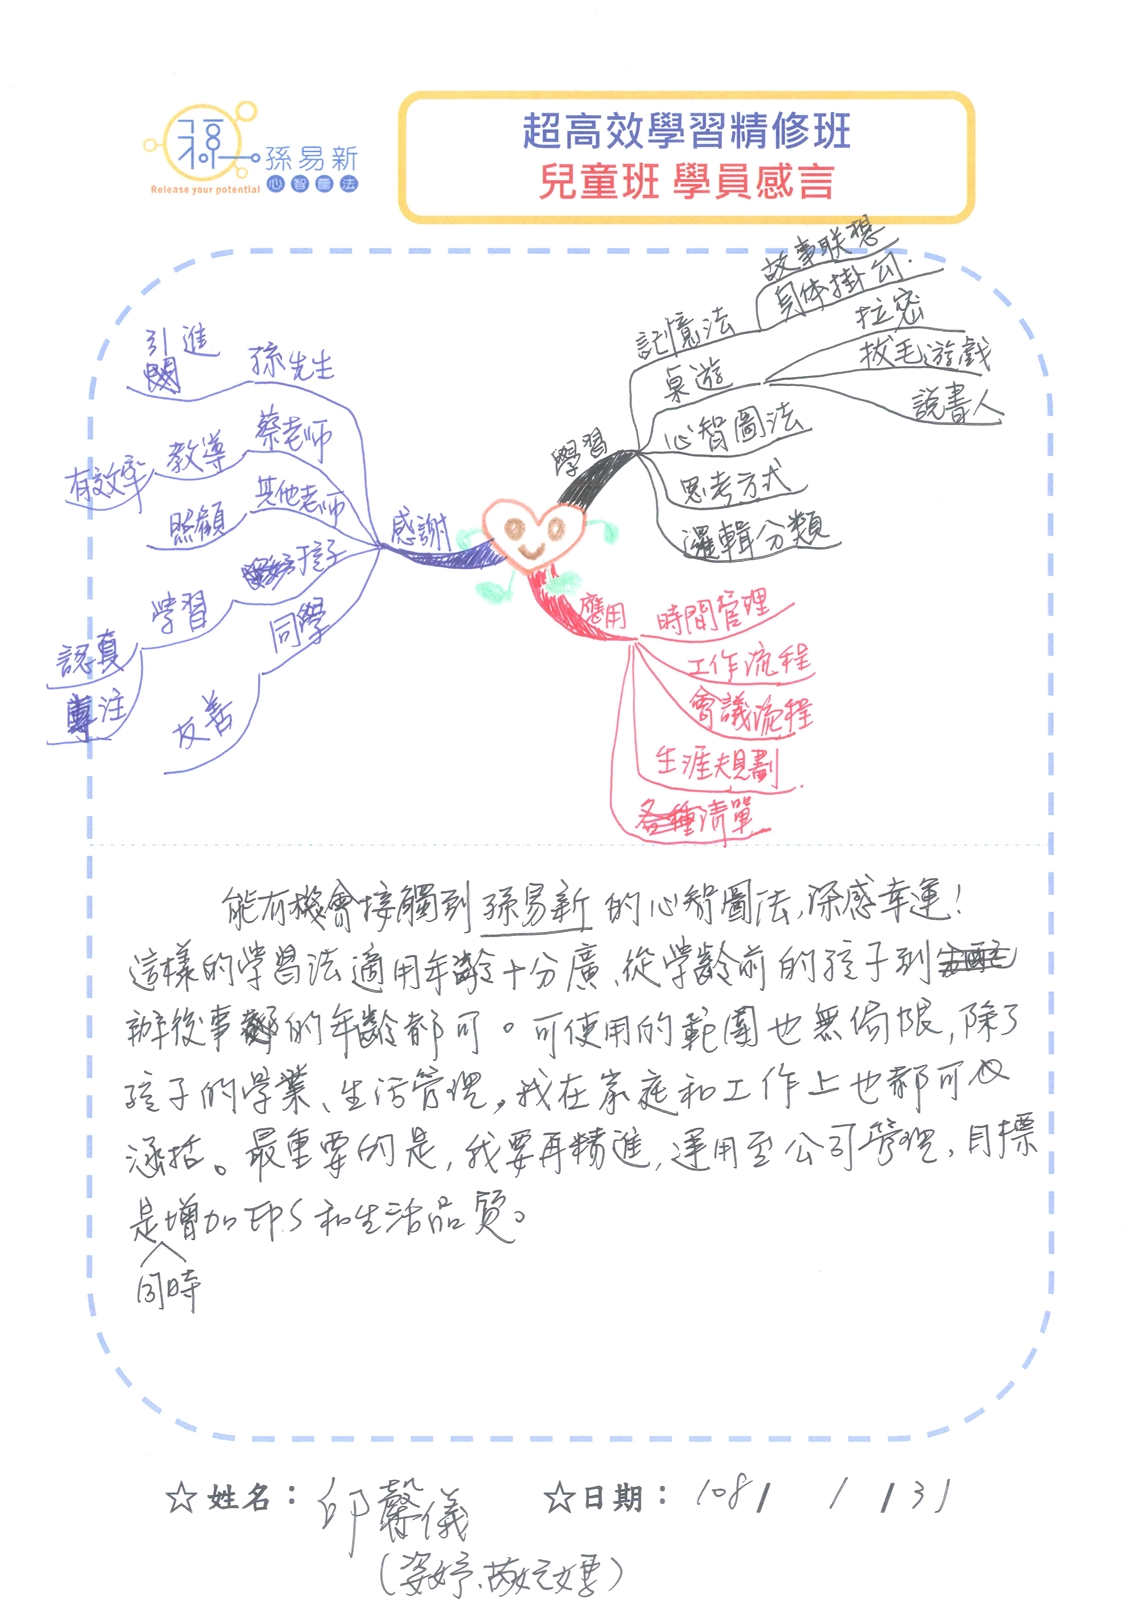 孫易新
心智圖法
Release your potential
超高效學習精修班
兒童班 學員感言
引進
孫先生
蔡老师
教導
有效率
其他老师
照顧
孩子
学習
認真
專注
同學
友善
感謝
學習
記憶法
故事联想
具体掛勾
桌遊
拉密
拔毛遊戲
說書人
心智圖法
思考方式
邏輯分類
應用
時間管理
工作流程
會議流程
生涯規劃
清單
能有機會接觸到孫易新的心智圖法,深感幸運!
這樣的学習法適用年齡十分廣、從学齡前的孩子到
辦後事的年齡都可。可使用的範圍也無侷限,除了
孩子的学業、生活管理,我在家庭和工作上也都可以
涵括。最重要的是,我要再精進,運用至公司管理,目標
是同時增加EPS和生活品質。
☆姓名: 邱馨儀
☆日期: 108/ 1 /31